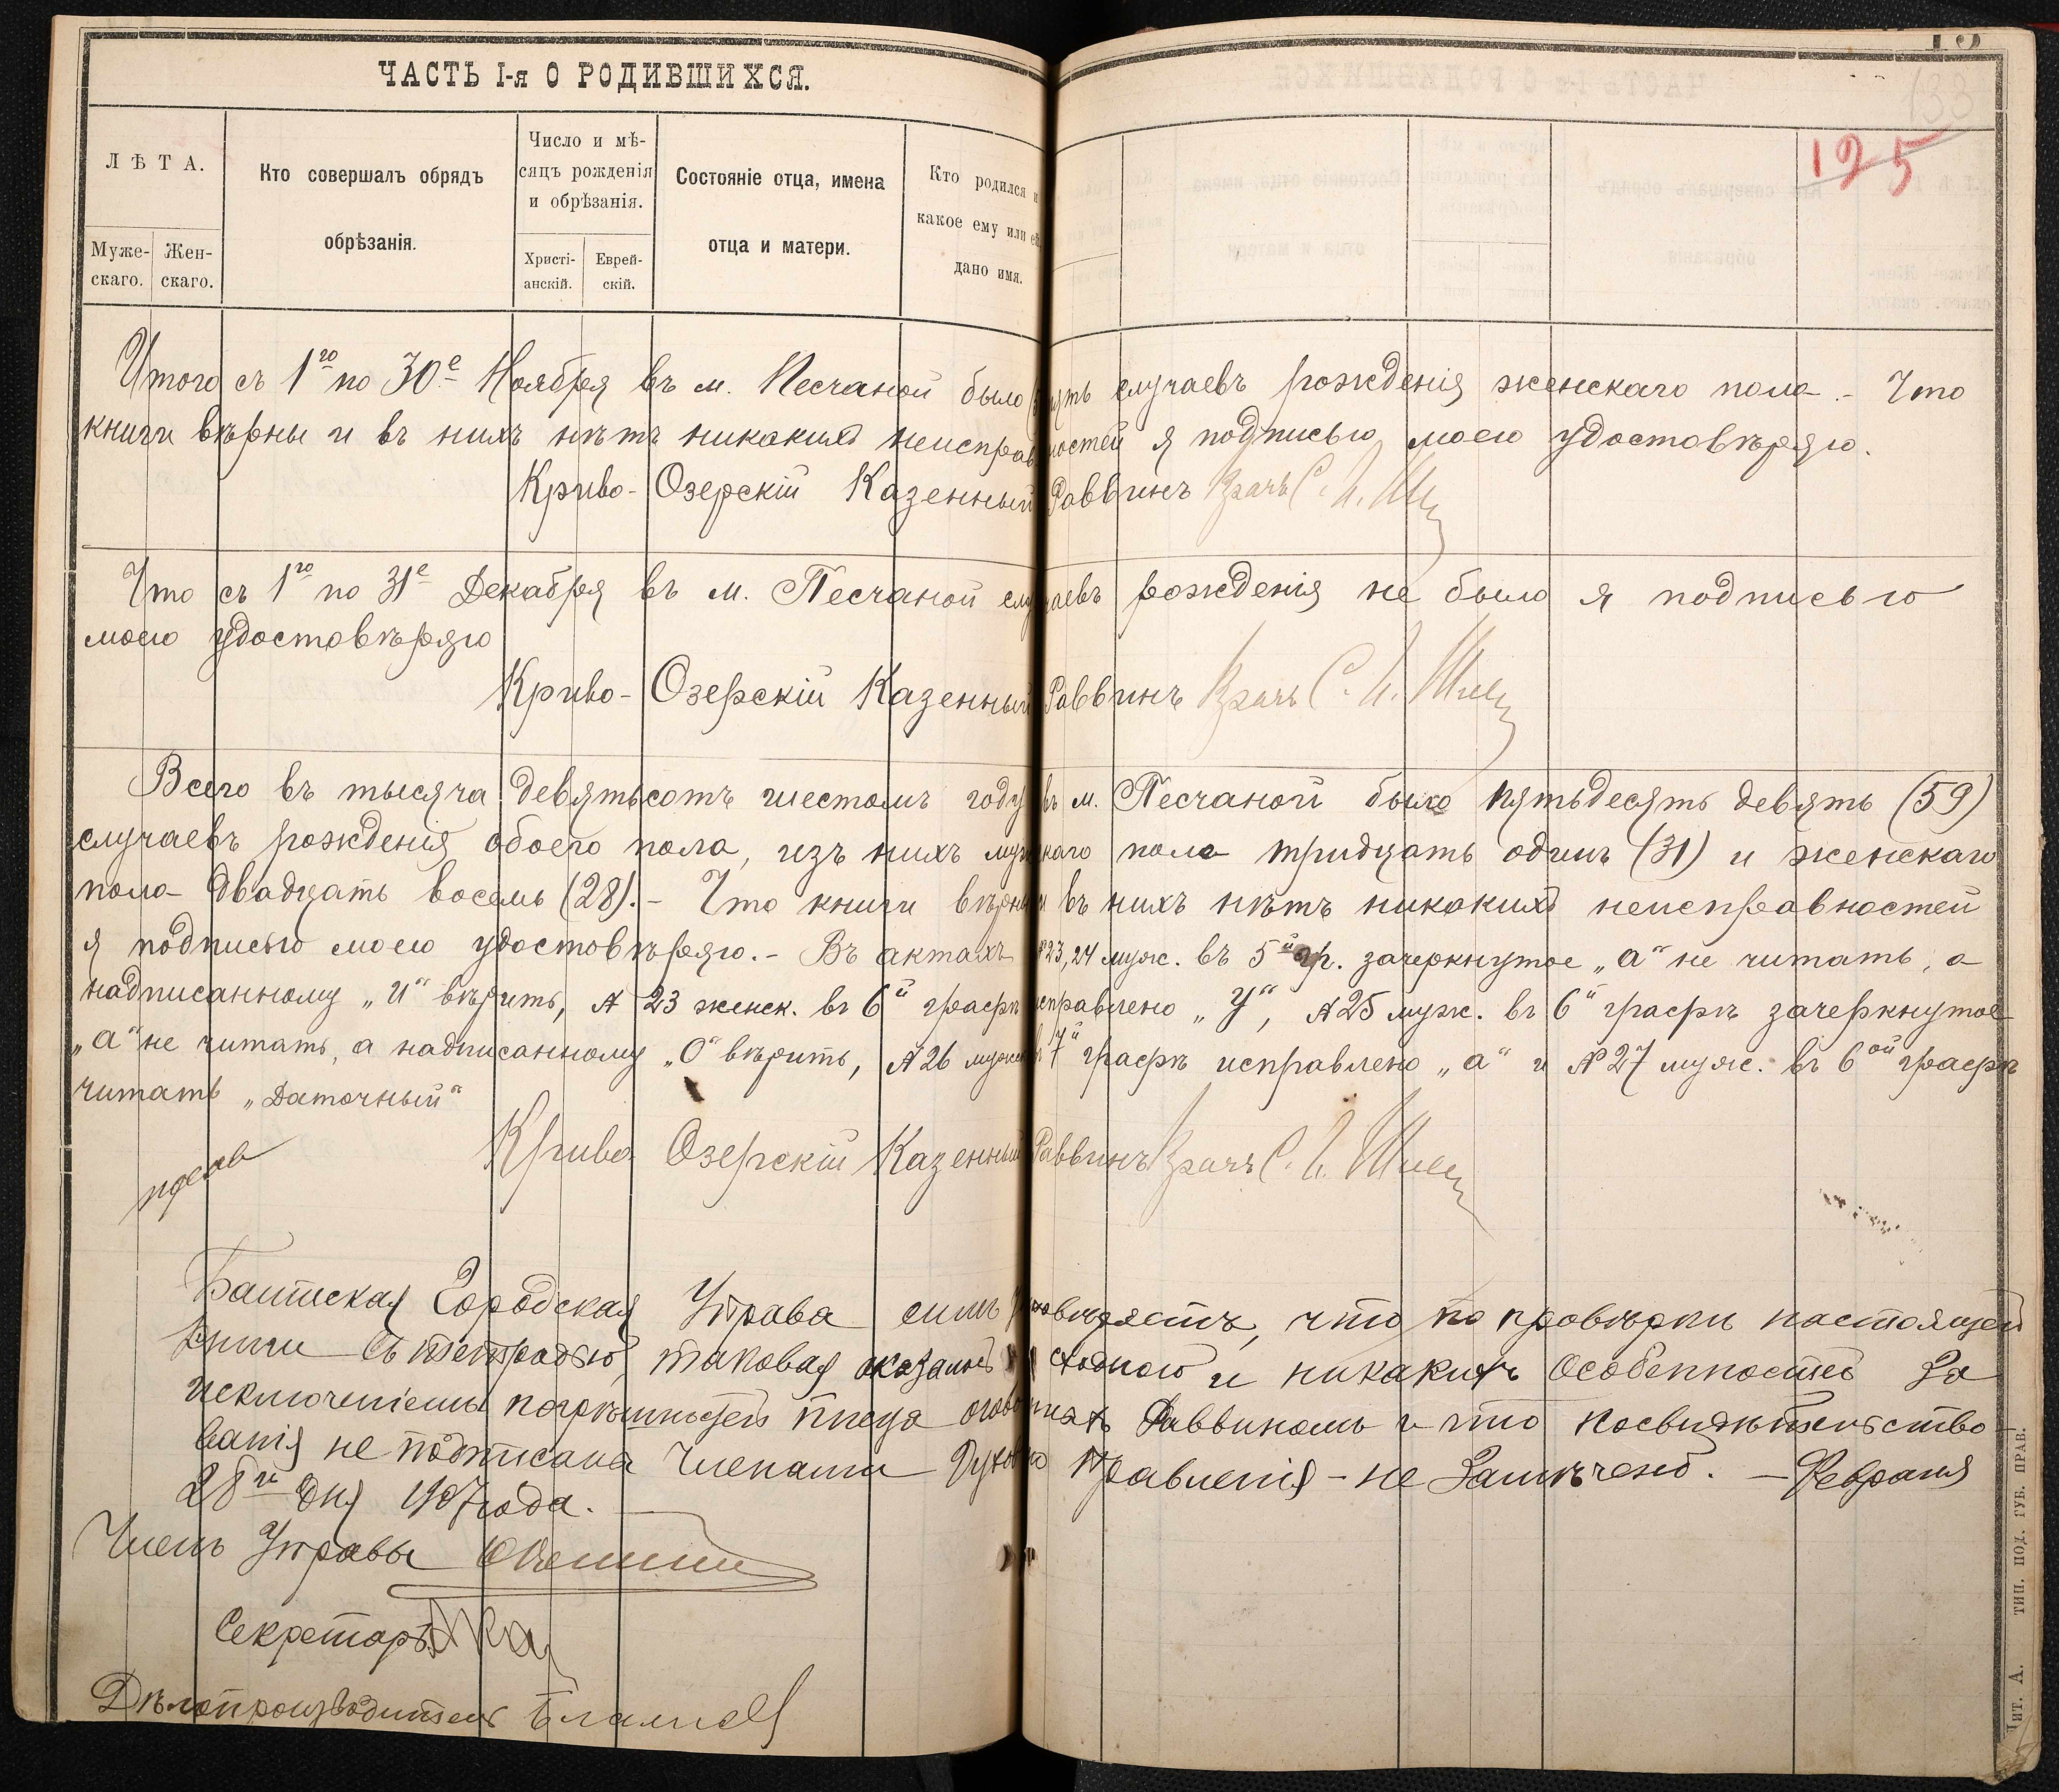 ЧАСТЬ I-я О РОДИВШИХСЯ.
125
ЛѢТА.
Муже-
скаго.
Жен-
скаго.
Кто совершалъ обрядъ
обрѣзанія.
Число и мѣ-
сяцъ рожденія
и обрѣзанія.
Христі-
анскій.
Еврей-
скій.
Состояніе отца, имена
отца и матери.
Кто родился и
какое ему или ей
дано имя.
Итого съ 1го по 30е Ноября въ м. Песчаной было случаевъ рожденія женскаго пола. - Что
книги вѣрны и въ нихъ нѣтъ никакихъ неисправностей я подписью моею удостовѣряю.
Криво-Озерскій Казенный Раввинъ Врачъ С. И.
Что съ 1го по 31е Декабря въ м. Песчаной случаевъ рожденія не было я подписью
моею удостовѣряю
Криво-Озерскій Казенный Раввинъ Врачъ С. И.
Всего въ тысяча девятьсотъ шестомъ году въ м. Песчаной было пятьдесять девять (59)
случаевъ рожденія обоего пола, изъ нихъ мужскаго пола тридцать одинъ (31) и женскаго
пола двадцать восемь (28). - Что книги вѣрны и въ нихъ нѣтъ никакихъ неисправностей
я подписью моею удостовѣряю. - Въ актахъ №23, 24 муж. въ 5й гр. зачеркнутое „а“ не читать, а
надписанному „и“ вѣрить, № 23 женск. въ 6й графѣ исправлено „У“, №25 муж. въ 6й графѣ зачеркнутое
„а“ не читать, а надписанному „О“ вѣрить, №26 мужск. въ 7й графѣ исправлено „а“ и №27 муж. въ 6ой графѣ
читать „Даточный“
Криво Озерскій Казенный Раввинъ Врачъ С. И.
Балтская Городская Управа симъ удостовѣряетъ, что по провѣрки настоящей
книги съ тетрадью, таковая оказалась сходною и никакихъ особенностей за
исключеніемъ погрѣшностей писца оговоренныхъ Раввиномъ и что по свидѣтельство-
ванія не подписана Членами Духовно Правленія - не замѣчено. - Февраля
28го дня 1907 года.
Членъ Управы
Секретарь
Дѣлопроизводитель
Чит. А. ТИП. ПОД. ГУБ. ПРАВ.